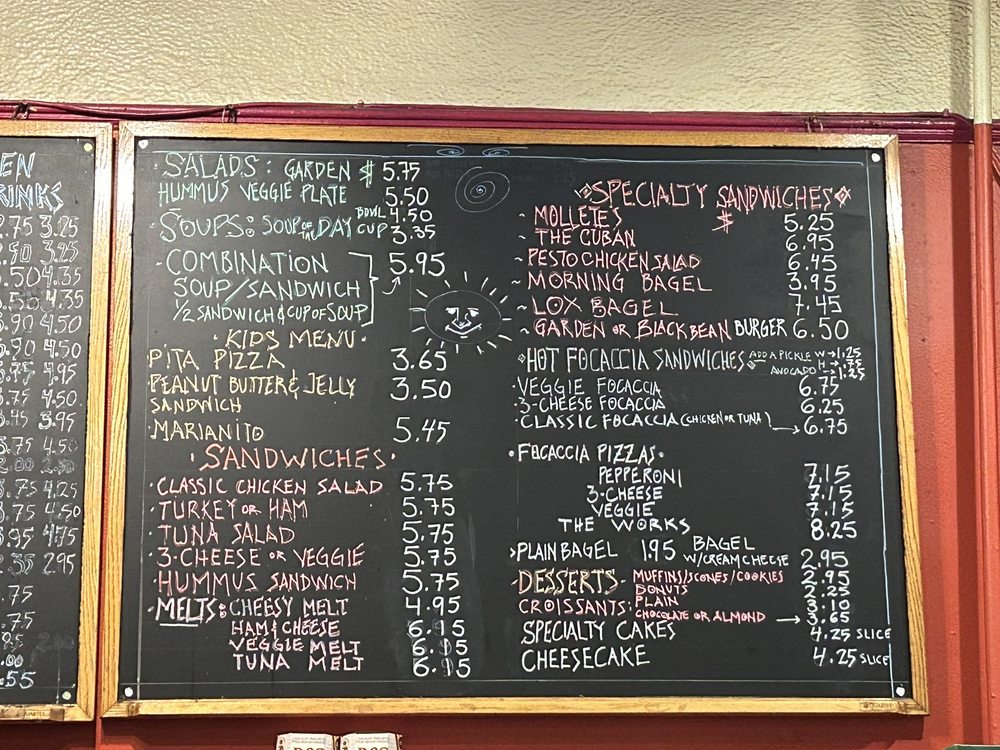 EN
RINKS
.75 3.25
.50 3.95
.50 4.35
.50 4.35
.90 4.50
.90 4.50
.75 4.95
.75 4.50
.45 3.95
.75 4.50
.00
.75 4.25
.75 4.50
.95 4.75
2.35 2.95
.75
.75
.00
.55
· SALADS: GARDEN $ 5.75
HUMMUS VEGGIE PLATE 5.50
· SOUPS: SOUP OF THE DAY BOWL 4.50
CUP 3.35
· COMBINATION 5.95
SOUP/SANDWICH
1/2 SANDWICH & CUP OF SOUP
· KIDS MENU ·
PITA PIZZA 3.65
PEANUT BUTTER & JELLY 3.50
SANDWICH
· MARIANITO 5.45
· SANDWICHES ·
· CLASSIC CHICKEN SALAD 5.75
· TURKEY OR HAM 5.75
· TUNA SALAD 5.75
· 3-CHEESE OR VEGGIE 5.75
· HUMMUS SANDWICH 5.75
· MELTS: CHEESY MELT 4.95
HAM & CHEESE 6.15
VEGGIE MELT 6.15
TUNA MELT 6.15
SPECIALTY SANDWICHES
~ MOLLETES $ 5.25
~ THE CUBAN 6.95
~ PESTO CHICKEN SALAD 6.45
~ MORNING BAGEL 3.95
~ LOX BAGEL 7.45
~ GARDEN OR BLACKBEAN BURGER 6.50
HOT FOCACCIA SANDWICHES ADD A PICKLE W → 1.25
H → .75
AVOCADO → 1.25
· VEGGIE FOCACCIA 6.75
· 3-CHEESE FOCACCIA 6.25
· CLASSIC FOCACCIA (CHICKEN OR TUNA) → 6.75
· FOCACCIA PIZZAS ·
PEPPERONI 7.15
3-CHEESE 7.15
VEGGIE 7.15
THE WORKS 8.25
> PLAIN BAGEL 1.95 BAGEL W/CREAM CHEESE 2.95
· DESSERTS · MUFFINS/SCONES/COOKIES 2.95
DONUTS 2.25
CROISSANTS: PLAIN 3.10
CHOCOLATE OR ALMOND → 3.65
SPECIALTY CAKES 4.25 SLICE
CHEESECAKE 4.25 SLICE
QUARTET
QUARTET